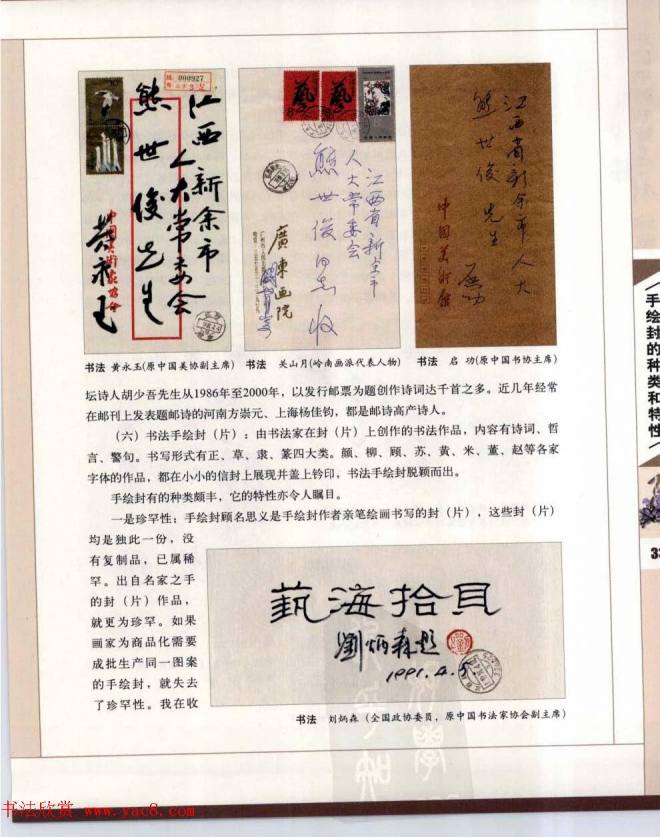 000927
江西新余市
人大常委会
熊世俊先生
中国美术家协会
黄永玉
江西省新余市
人大常委会
熊世俊同志收
廣東画院
江西省新余市人大
熊世俊先生
启功
中国美術館
书法 黄永玉(原中国美协副主席)
书法 关山月(岭南画派代表人物)
书法 启 功(原中国书协主席)
坛诗人胡少吾先生从1986年至2000年，以发行邮票为题创作诗词达千首之多。近几年经常
在邮刊上发表题邮诗的河南方崇元、上海杨佳钧，都是邮诗高产诗人。
（六）书法手绘封（片）：由书法家在封（片）上创作的书法作品，内容有诗词、哲
言、警句。书写形式有正、草、隶、篆四大类。颜、柳、顾、苏、黄、米、董、赵等各家
字体的作品，都在小小的信封上展现并盖上钤印，书法手绘封脱颖而出。
手绘封有的种类颇丰，它的特性亦令人瞩目。
一是珍罕性：手绘封顾名思义是手绘封作者亲笔绘画书写的封（片），这些封（片）
均是独此一份，没
有复制品，已属稀
罕。出自名家之手
的封（片）作品，
就更为珍罕。如果
画家为商品化需要
成批生产同一图案
的手绘封，就失去
了珍罕性。我在收
藝海拾貝
劉炳森題
1991.4.5.
书法 刘炳森（全国政协委员，原中国书法家协会副主席）
手绘封的种类和特性
33
书法欣赏 www.yac8.com